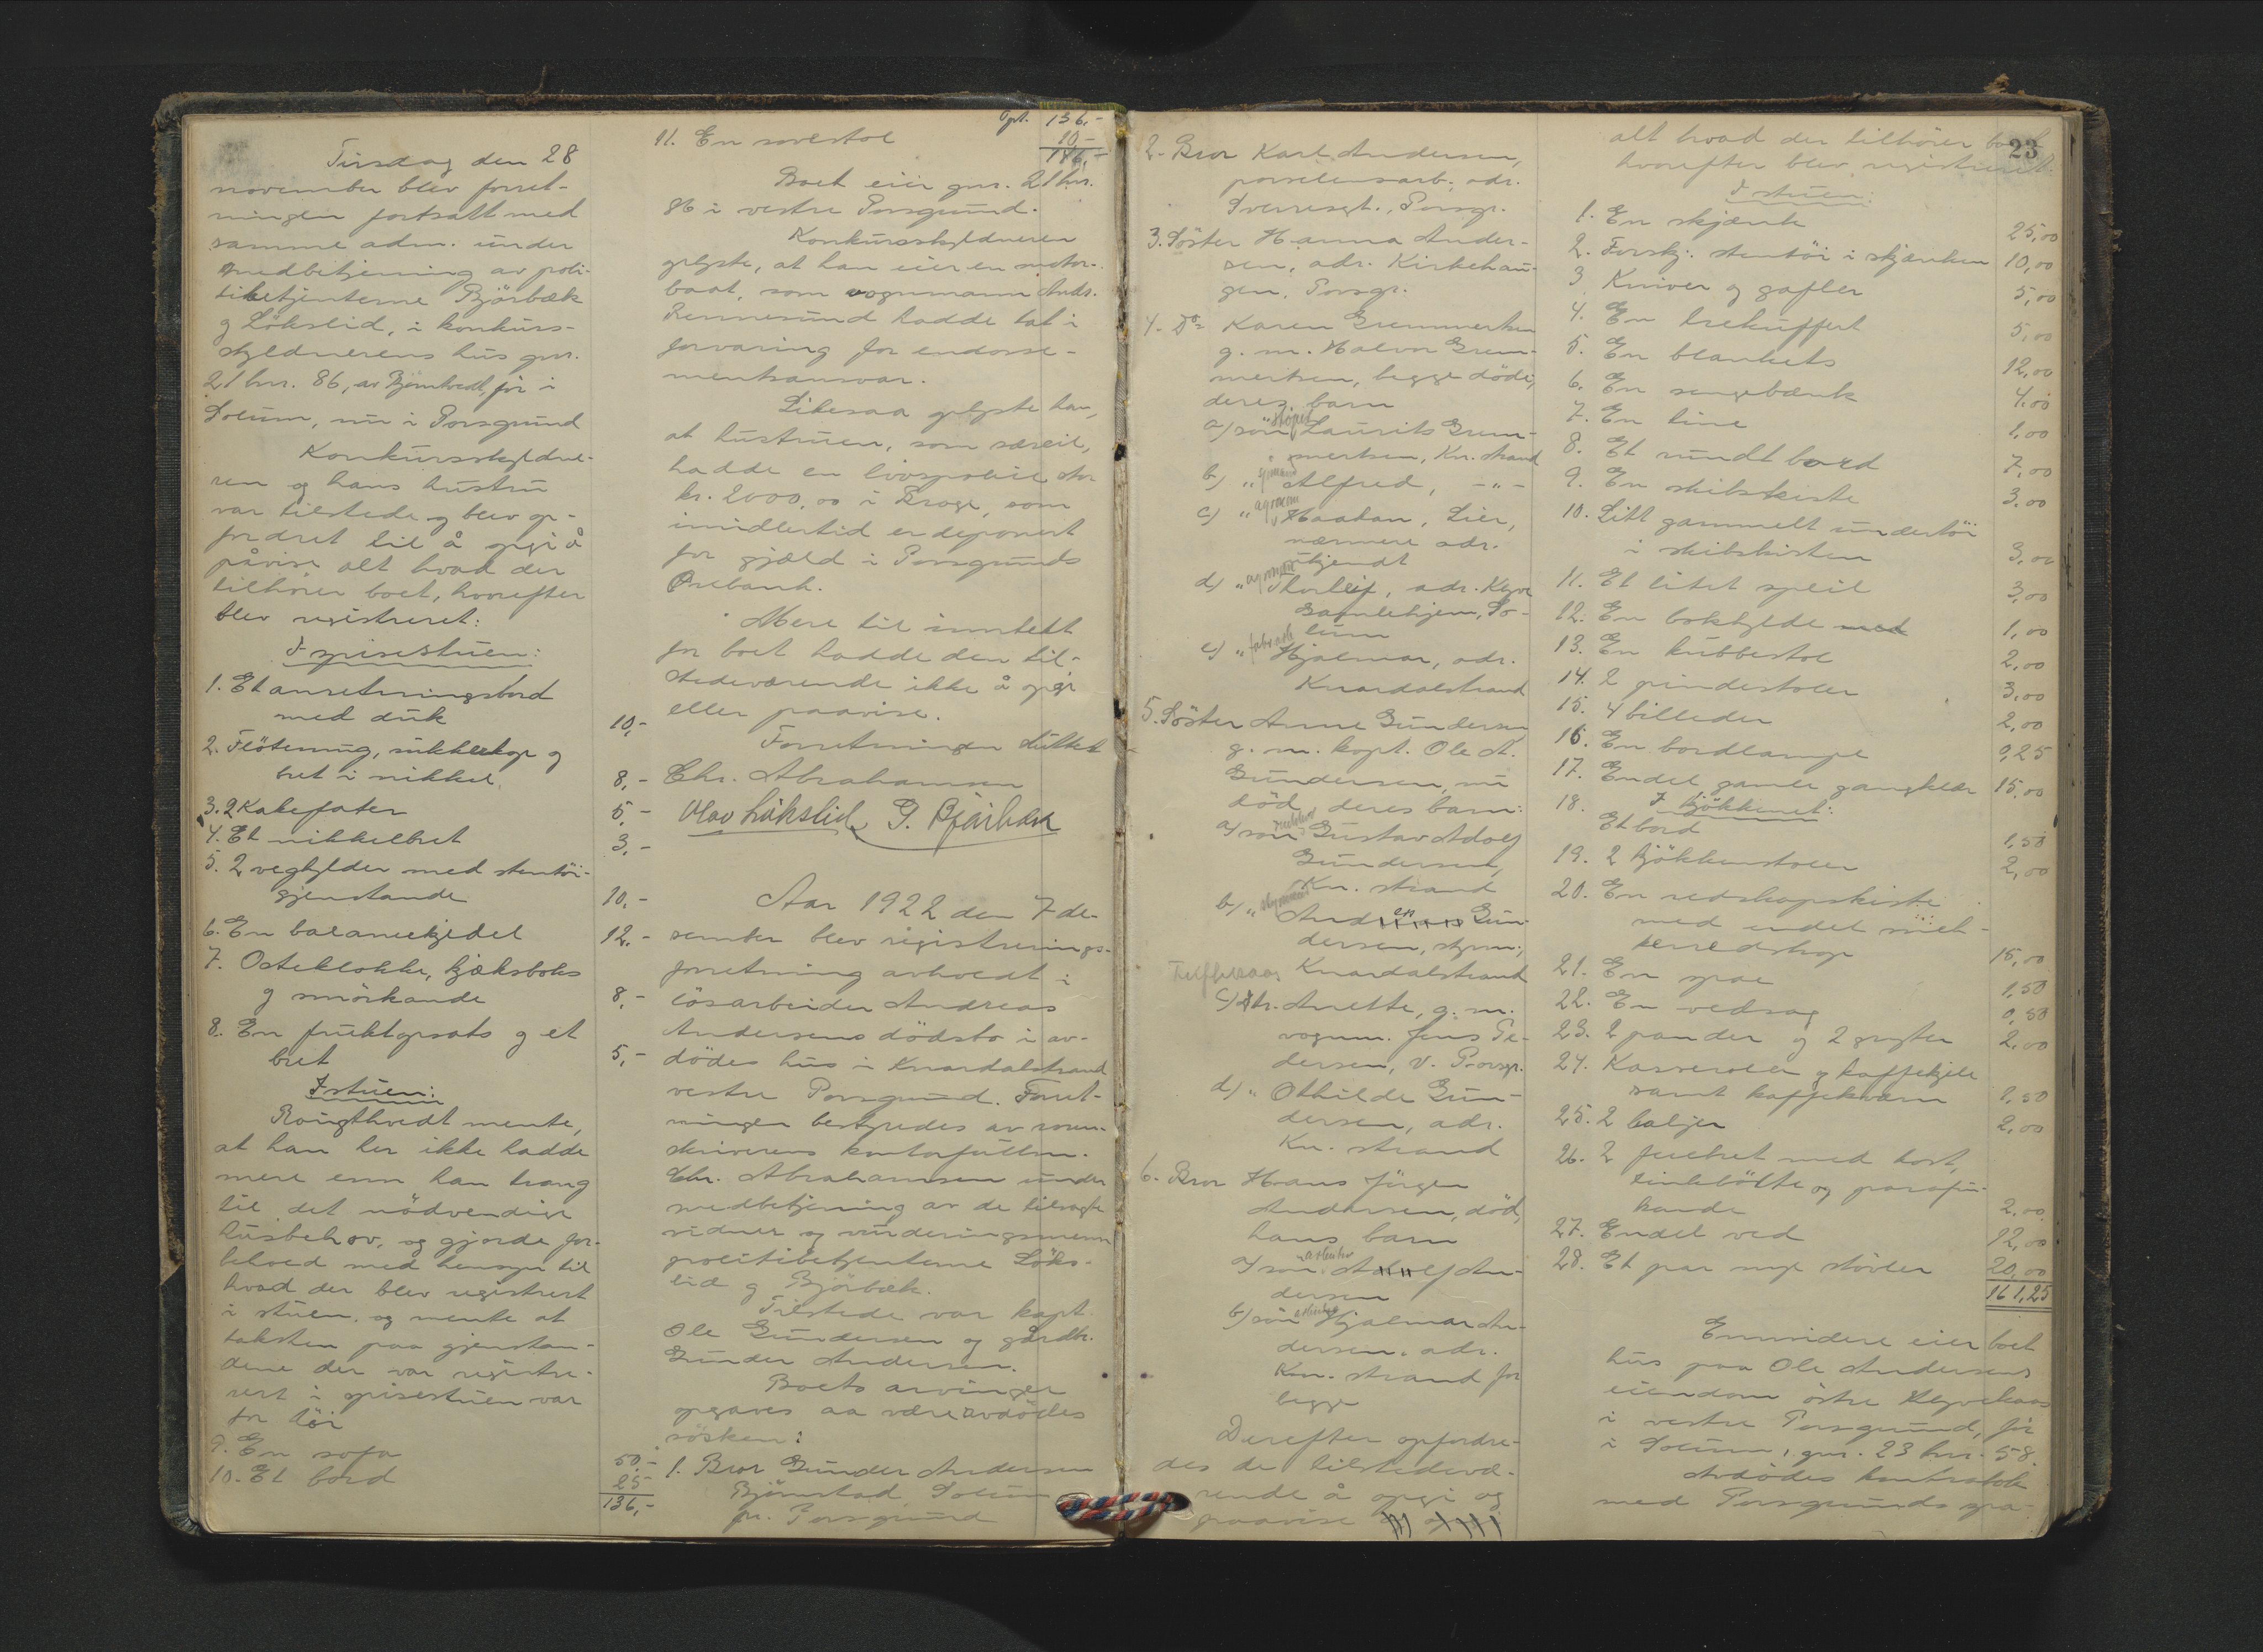 Tirsdag den 28
november blev forret-
ningen fortsatt med
samme adm. under
medbetjening av poli-
tibetjenterne Bjørbæk
og Løkslid, i konkurs-
skyldnerens hus gnr.
21 bnr. 86, av Bjørntvedt, før i
Solum, nu i Porsgrund
Konkursskyldne-
ren og hans hustru
var tilstede og blev op-
fordret til å opgi å
påvise alt hvad der
tilhører boet, hvorefter
blev registreret:
I spisestuen:
1. Et anretningsbord
med duk 10,-
2. Fløtemug, sukkerkop og
bret i nikkel 8,-
3. 2 Kakefater 5,-
4. Et nikkelbret 3,-
5. 2 veghylder med stentøi-
gjenstande 10,-
6. En balancekjedel 12,-
7. Osteklokke, kjeksboks
og smørkande 8,-
8. En fruktopsats og et
bret 5,-
I stuen:
mente,
at han her ikke hadde
mere enn han trang
til det nødvendige
husbehov, og gjorde for-
behold med hensyn til
hvad der blev registrert
i stuen, og mente at
taksten paa gjenstan-
dene der var registre-
rert i spisestuen var
for høi
9. En sofa 50,-
10. Et bord 25
136,-
Opt. 136,-
11. En sovestol 10,-
146,-
Boet eier gnr. 21 bnr.
86 i vestre Porsgrund.
Konkursskyldneren
oplyste, at han eier en motor-
baat, som vognmann Andr.
Rennesund hadde tat i
forvaring for endosse-
mentsansvar.
Likesaa oplyste han,
at hustruen, som særeie,
hadde en livspolise stor
kr. 2000,00 i som
imidlertid er deponert
for gjæld i Porsgrunds
Ørebank.
Mere til inntekt
for boet hadde den til-
stedeværende ikke å opgi
eller paavise.
Forretningen sluttet
Chr. Abrahamsen
Olav Løkslid G. Bjørbæk
Aar 1922 den 7 de-
sember blev registrerings-
forretning avholdt i
løsarbeider Andreas
Andersens dødsbo i av-
dødes hus i Knardalstrand
vestre Porsgrund. Forret-
ningen bestyredes av soren-
skriverens kontorfuldm.
Chr. Abrahamsen under
medbetjening av de tilsagte
vidner og vurderingsmenn
politibetjenterne Løks-
lid og Bjørbæk.
Tilstede var kapt.
Ole Gundersen og gårdbr.
Gunder Andersen.
Boets arvinger
opgaves aa være avdødes
søsken:
1. Bror Gunder Andersen
Bjørnstad, Solum
pr. Porsgrund
2. Bror Karl Andersen,
porselensarb., adr.
Sverresgt., Porsgr.
3. Søster Hanna Ander-
sen, adr. Kirkehau-
gen, Porsgr.
4. Do Karen Gremmertsen
g. m. Halvor Grem-
mertsen, begge døde,
deres barn
a) søn Laurits Grem-
mertsen, Kn. strand
b) " Alfred, -"-
c) " Haakon, Lier,
nærmere adr.
ukjendt
d) " Thorleif, adr. Klyve
Gamlehjem, So-
lum
e) " Hjalmar, adr.
Knardalstrand
5. Søster Anne Gundersen
g. m. kapt. Ole A.
Gundersen, nu
død, deres barn:
a) søn Gustav Adolf
Gundersen,
Kn. strand
b) " Gun-
dersen, styrm.,
Knardalstrand
c) dtr. Anette, g. m.
vognm. Jens Pe-
dersen, V. Porsgr.
d) " Othilde Gun-
dersen, adr.
Kn. strand
6. Bror Hans Jørgen
Andersen, død,
hans barn
a) søn An-
dersen
b) søn Hjalmar An-
dersen, adr.
Kn. strand for
begge
Derefter opfordre-
des de tilstedevæ-
rende å opgi og
paavise
23
alt hvad der tilhører boet
hvorefter blev registreret:
I stuen:
1. En skjænk 25,00
2. Forskj. stentøi i skjænken 10,00
3. Kniver og gafler 5,00
4. En trekuffert 5,00
5. En blankets 12,00
6. En sengebænk 4,00
7. En tine 1,00
8. Et rundt bord 7,00
9. En skibskiste 3,00
10. Litt gammelt undertøi
i skibskisten 3,00
11. Et litet speil 3,00
12. En bokhylde med 1,00
13. En kubbestol 2,00
14. 2 pindestoler 3,00
15. 4 billeder 2,00
16. En bordlampe 0,25
17. Endel gamle gangklær 15,00
I kjøkkenet:
18. Et bord 1,50
19. 2 kjøkkenstoler 2,00
20. En redskapskiste
med endel snek-
kerredskap 15,00
21. En spae 1,50
22. En vedsag 0,50
23. 2 pander og 2 gryter 2,00
24. Kasseroler og kaffekjele
samt kaffekvarn 1,50
25. 2 baljer 2,00
26. 2 feiebret med kost,
sinkbøtte og parafin-
kande 2,00
27. Endel ved 12,00
28. Et par nye støvler 20,00
161,25
Ennvidere eier boet
hus paa Ole Andersens
eiendom østre Klyvekaas
i vestre Porsgrund, før
i Solum, gnr. 23 bnr. 58.
Avdødes kontrabok
med Porsgrunds spa-